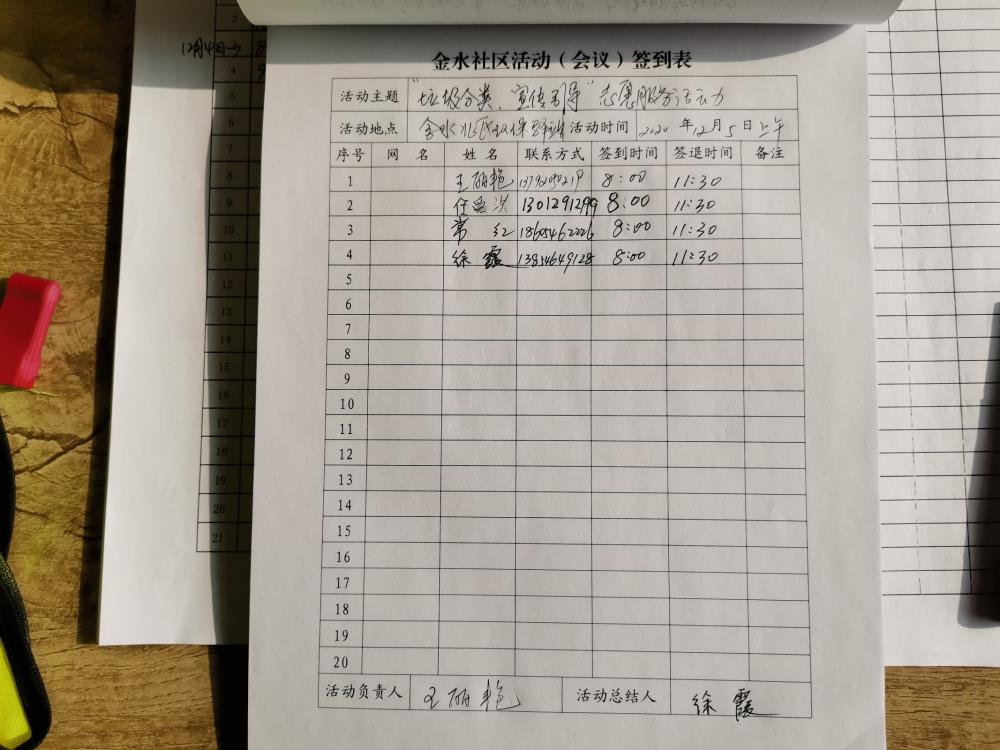 金水社区活动（会议）签到表
活动主题 “垃圾分类、宣传引导”志愿服务活动
活动地点 金水 环保驿站 活动时间 2020年12月5日上午
序号 网名 姓名 联系方式 签到时间 签退时间 备注
1 王丽艳 8:00 11:30
2 任 洪 1301291299 8:00 11:30
3 常红 18605462226 8:00 11:30
4 徐霞 13854649128 8:00 11:30
5
6
7
8
9
10
11
12
13
14
15
16
17
18
19
20
活动负责人 王丽艳 活动总结人 徐霞
12月4日→
3
4
5
6
7
8
9
10
11
12
13
14
15
16
17
18
19
20
21